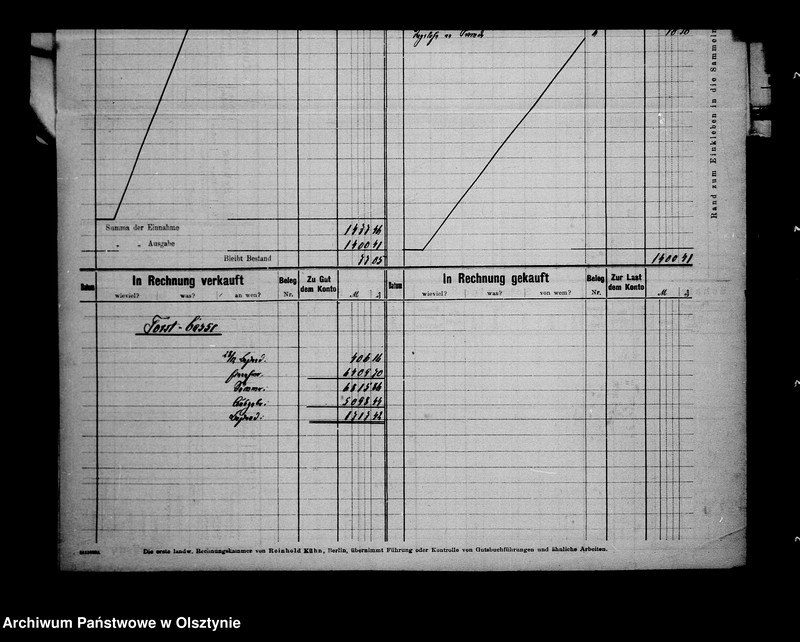 10.50
Rand zum Einkleben in die Sammelm
Summa der Einnahme 1477.46
" " Ausgabe 1400.41
Bleibt Bestand 77.05
1400.41
Datum In Rechnung verkauft Beleg Nr. Zu Gut dem Konto
wieviel? was? an wen? M ₰
Datum In Rechnung gekauft Beleg Nr. Zur Last dem Konto
wieviel? was? von wem? M ₰
Forst-
406.16
6409.70
Summe: 6815.86
5098.44
1717.42
Die erste landw. Rechnungskammer von Reinhold Kühn, Berlin, übernimmt Führung oder Kontrolle von Gutsbuchführungen und ähnliche Arbeiten.
Archiwum Państwowe w Olsztynie